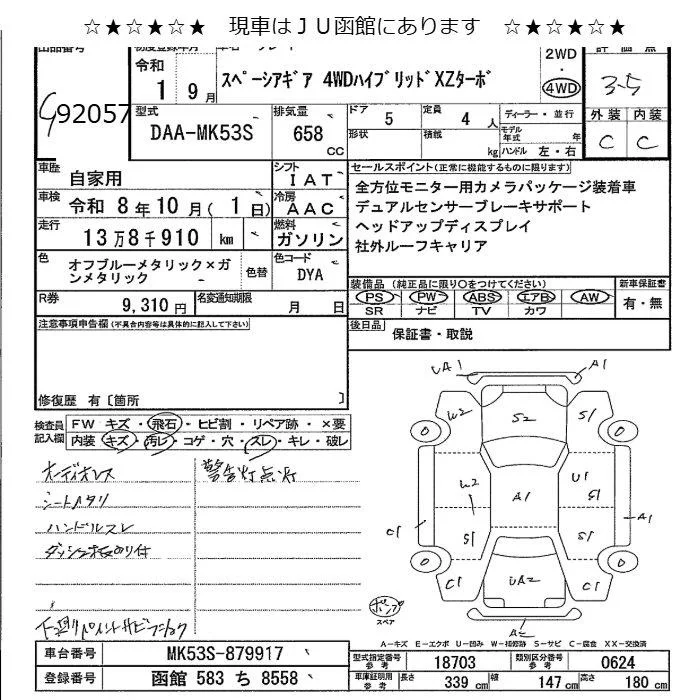 ☆★☆★☆★ 現車はＪＵ函館にあります ☆★☆★☆★
出品番号 初度登録年月 評価点
令和 2WD ・ 4WD
1 9月 スペーシアギア 4WDハイブリッドXZターボ 3.5
92057
型式 排気量 ドア 5 定員 4人 ディーラー・並行 外装 内装
DAA-MK53S 658 CC 形状 積載 kg モデル年式 年 C C
ハンドル 左・右
車歴 自家用 シフト IAT セールスポイント(正常に機能するものに限ります)
車検 令和 8年10月(1日) 冷房 AAC 全方位モニター用カメラパッケージ装着車
デュアルセンサーブレーキサポート
走行 13万8千910 km 燃料 ガソリン ヘッドアップディスプレイ
社外ルーフキャリア
色 オフブルーメタリック×ガンメタリック 色替 色コード DYA
装備品 (純正品に限り○をつけてください) 新車保証書
R券 9,310円 名変通知期限 月 日 PS PW ABS エアB AW 有・無
SR ナビ TV カワ
注意事項申告欄(不具合内容等は具体的に記入して下さい) 後日品 保証書・取説
修復歴 有〔箇所 〕
検査員記入欄 FW キズ・飛石・ヒビ割・リペア跡・×要
内装 キズ・汚レ・コゲ・穴・スレ・キレ・破レ
オーディオレス 警告灯点灯
シートヘタリ
ハンドルスレ
UA1 A1
W2 S2 S1
0 0
W2 A1 U1 S1
C1 S1 S1 A1
0 0
C1 UA2 C1
スペア A2
A-キズ E-エクボ U-凹み W-補修跡 S-サビ C-腐食 XX-交換済
車台番号 MK53S-879917 型式指定番号 参考 18703 類別区分番号 参考 0624
登録番号 函館 583 ち 8558 車庫証明用 参考 長さ 339cm 幅 147cm 高さ 180cm